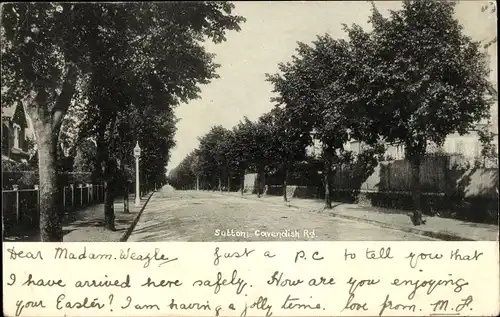 Sutton; Cavendish Rd
Dear Madam. Weagle Just a p.c to tell you that
I have arrived here safely. How are you enjoying
your Easter? I am having a jolly time. love from. M.L.